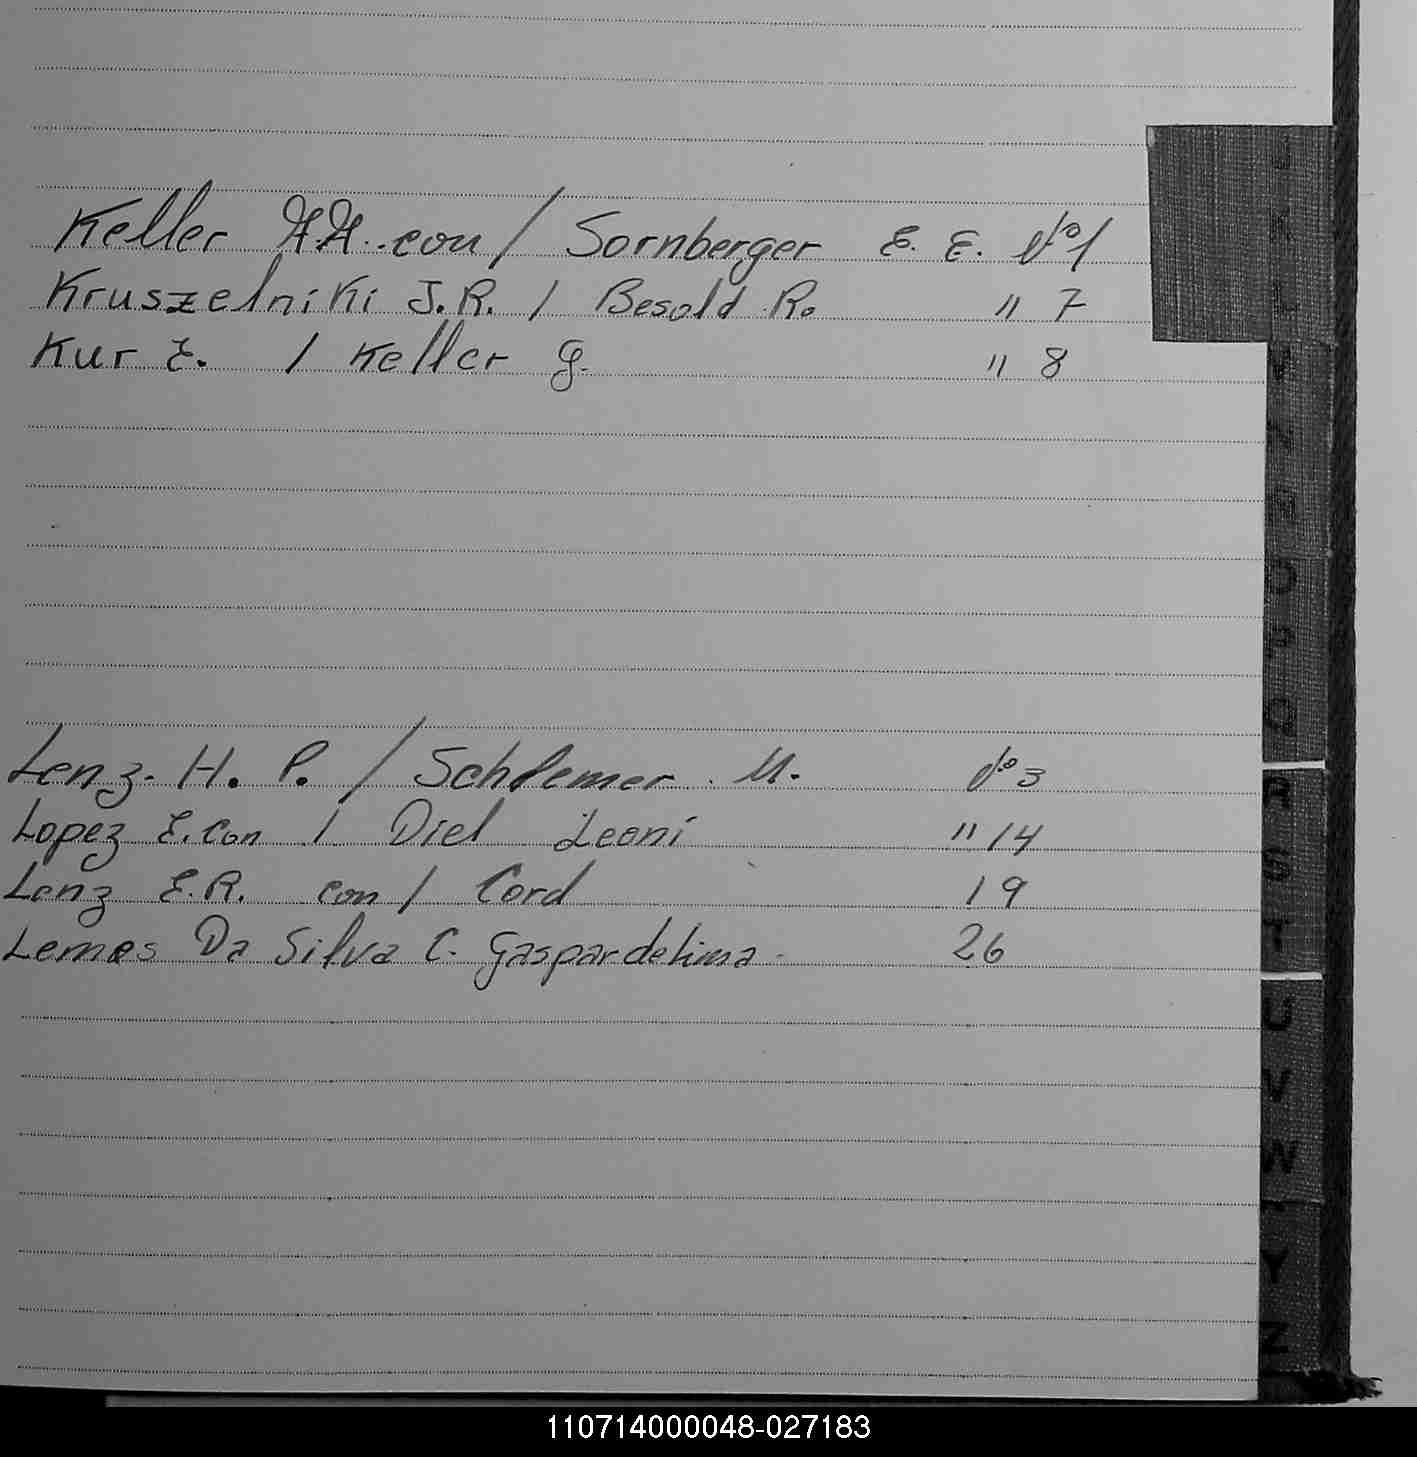 Keller H.H. con / Sornberger E. E. Nº 1
Kruszelniki J.R. / Besold R. " 7
Kur E. / Keller G. " 8
Lenz H. P. / Schlemer M. Nº 3
Lopez E. con / Diel Leoni " 14
Lenz E.R. con / Cord 19
Lemos Da Silva C. Gaspardelima 26
J
K
L
M
N
Ñ
O
P
Q
R
S
T
U
V
W
Y
Z
110714000048-027183